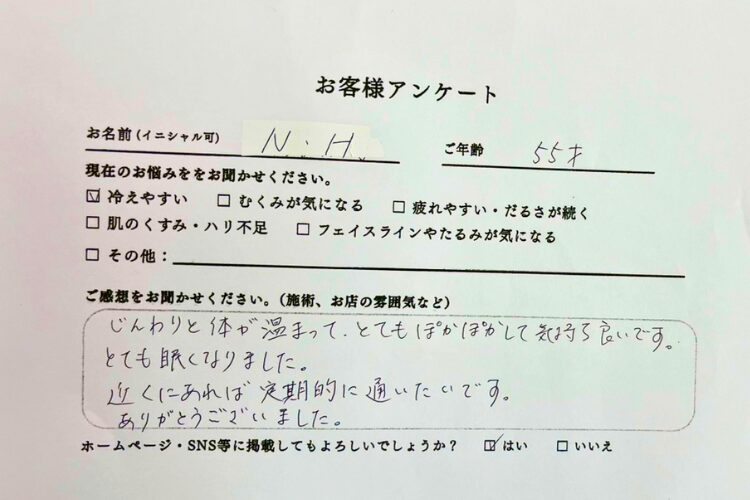 お客様アンケート
お名前(イニシャル可) N.H. ご年齢 55才
現在のお悩みををお聞かせください。
☑ 冷えやすい ☐ むくみが気になる ☐ 疲れやすい・だるさが続く
☐ 肌のくすみ・ハリ不足 ☐ フェイスラインやたるみが気になる
☐ その他：
ご感想をお聞かせください。(施術、お店の雰囲気など)
じんわりと体が温まって、とてもぽかぽかして気持ち良いです。
とても眠くなりました。
近くにあれば定期的に通いたいです。
ありがとうございました。
ホームページ・SNS等に掲載してもよろしいでしょうか？ ☑ はい ☐ いいえ